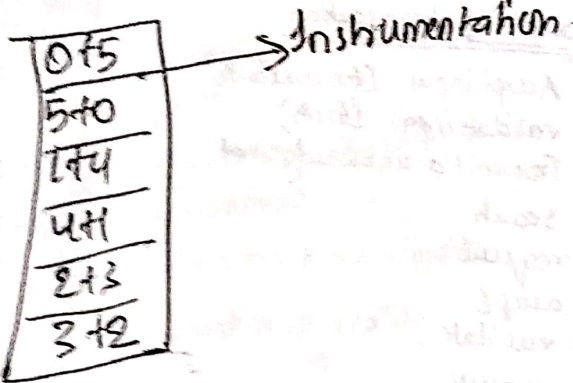 Instrumentation
0+5
5+0
1+4
4+1
2+3
3+2